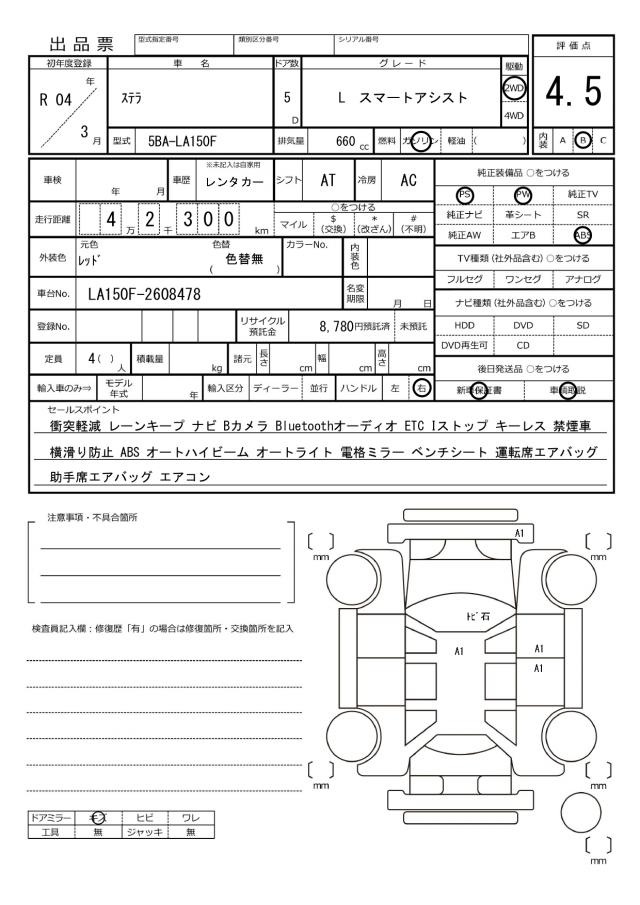 出品票
型式指定番号 類別区分番号 シリアル番号
初年度登録 車 名 ドア数 グレード 駆動 評価点
R 04 年 3 月 ステラ 5 D L スマートアシスト 2WD 4WD 4.5
型式 5BA-LA150F 排気量 660 cc 燃料 ガソリン 軽油 ( ) 内装 A B C
車検 年 月 車歴 ※未記入は自家用 レンタカー シフト AT 冷房 AC
走行距離 4 万 2 千 3 0 0 km ○をつける
マイル $(交換) *(改ざん) #(不明)
外装色 元色 レッド 色替 ( 色替無 ) カラーNo. 内装色
車台No. LA150F-2608478 名変期限 月 日
登録No. リサイクル預託金 8,780円預託済 未預託
定員 4( ) 人 積載量 kg 諸元 長さ cm 幅 cm 高さ cm
輸入車のみ⇒ モデル年式 年 輸入区分 ディーラー 並行 ハンドル 左 右
純正装備品 ○をつける
PS PW 純正TV
純正ナビ 革シート SR
純正AW エアB ABS
TV種類(社外品含む) ○をつける
フルセグ ワンセグ アナログ
ナビ種類(社外品含む) ○をつける
HDD DVD SD
DVD再生可 CD
後日発送品 ○をつける
新車保証書 車輌取説
セールスポイント
衝突軽減 レーンキープ ナビ Bカメラ Bluetoothオーディオ ETC Iストップ キーレス 禁煙車
横滑り防止 ABS オートハイビーム オートライト 電格ミラー ベンチシート 運転席エアバッグ
助手席エアバッグ エアコン
注意事項・不具合箇所
検査員記入欄：修復歴「有」の場合は修復箇所・交換箇所を記入
A1
[ ] mm [ ] mm
トビ石
A1 A1
A1
[ ] mm [ ] mm
[ ] mm
ドアミラー キズ ヒビ ワレ
工具 無 ジャッキ 無